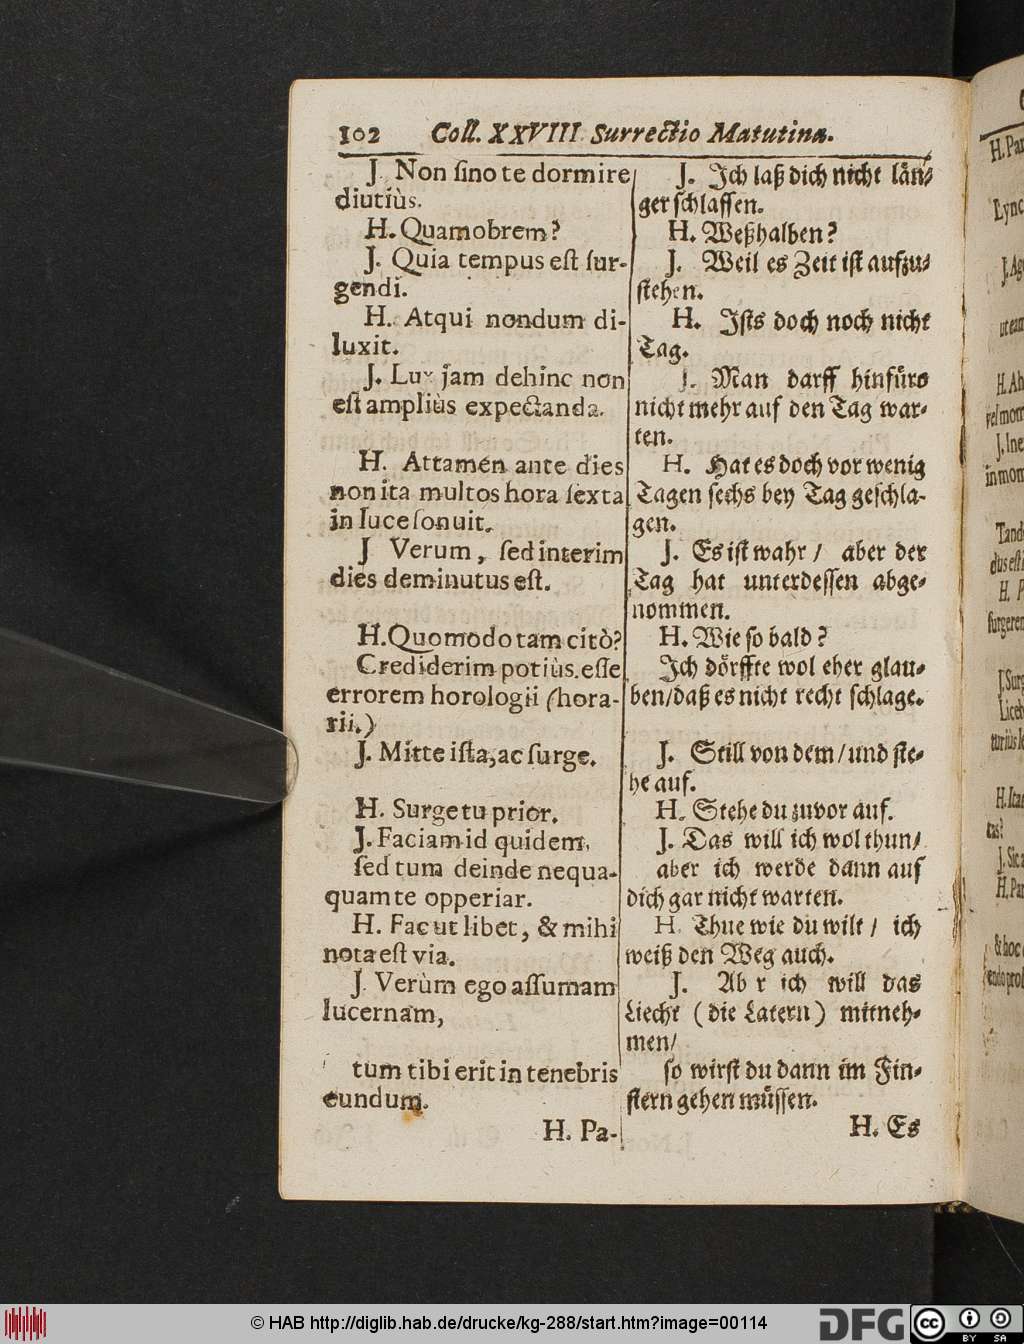 102 Coll. XXVIII. Surrectio Matutina.
J. Non sino te dormire
diutiùs.
H. Quamobrem?
J. Quia tempus est sur-
gendi.
H. Atqui nondum di-
luxit.
J. Lux jam dehinc non
est ampliùs expectanda.
H. Attamen ante dies
non ita multos hora sexta
in luce sonuit.
J Verum, sed interim
dies deminutus est.
H. Quomodo tam citò?
Crediderim potiùs esse
errorem horologii (hora-
rii.)
J. Mitte ista, ac surge.
H. Surge tu prior.
J. Faciam id quidem,
sed tum deinde nequa-
quam te opperiar.
H. Fac ut libet, & mihi
nota est via.
J. Verùm ego assumam
lucernam,
tum tibi erit in tenebris
eundum.
H. Pa-
J. Ich laß dich nicht län-
ger schlaffen.
H. Weßhalben?
J. Weil es Zeit ist aufzu-
stehen.
H. Ists doch noch nicht
Tag.
J. Man darff hinfüro
nicht mehr auf den Tag war-
ten.
H. Hat es doch vor wenig
Tagen sechs bey Tag geschla-
gen.
J. Es ist wahr / aber der
Tag hat unterdessen abge-
nommen.
H. Wie so bald?
Ich dörffte wol eher glau-
ben/daß es nicht recht schlage.
J. Still von dem/und ste-
he auf.
H. Stehe du zuvor auf.
J. Das will ich wol thun/
aber ich werde dann auf
dich gar nicht warten.
H. Thue wie du wilt / ich
weiß den Weg auch.
J. Ab r ich will das
Liecht (die Latern) mitneh-
men/
so wirst du dann im Fin-
stern gehen müssen.
H. Es
© HAB http://diglib.hab.de/drucke/kg-288/start.htm?image=00114
DFG
cc BY SA